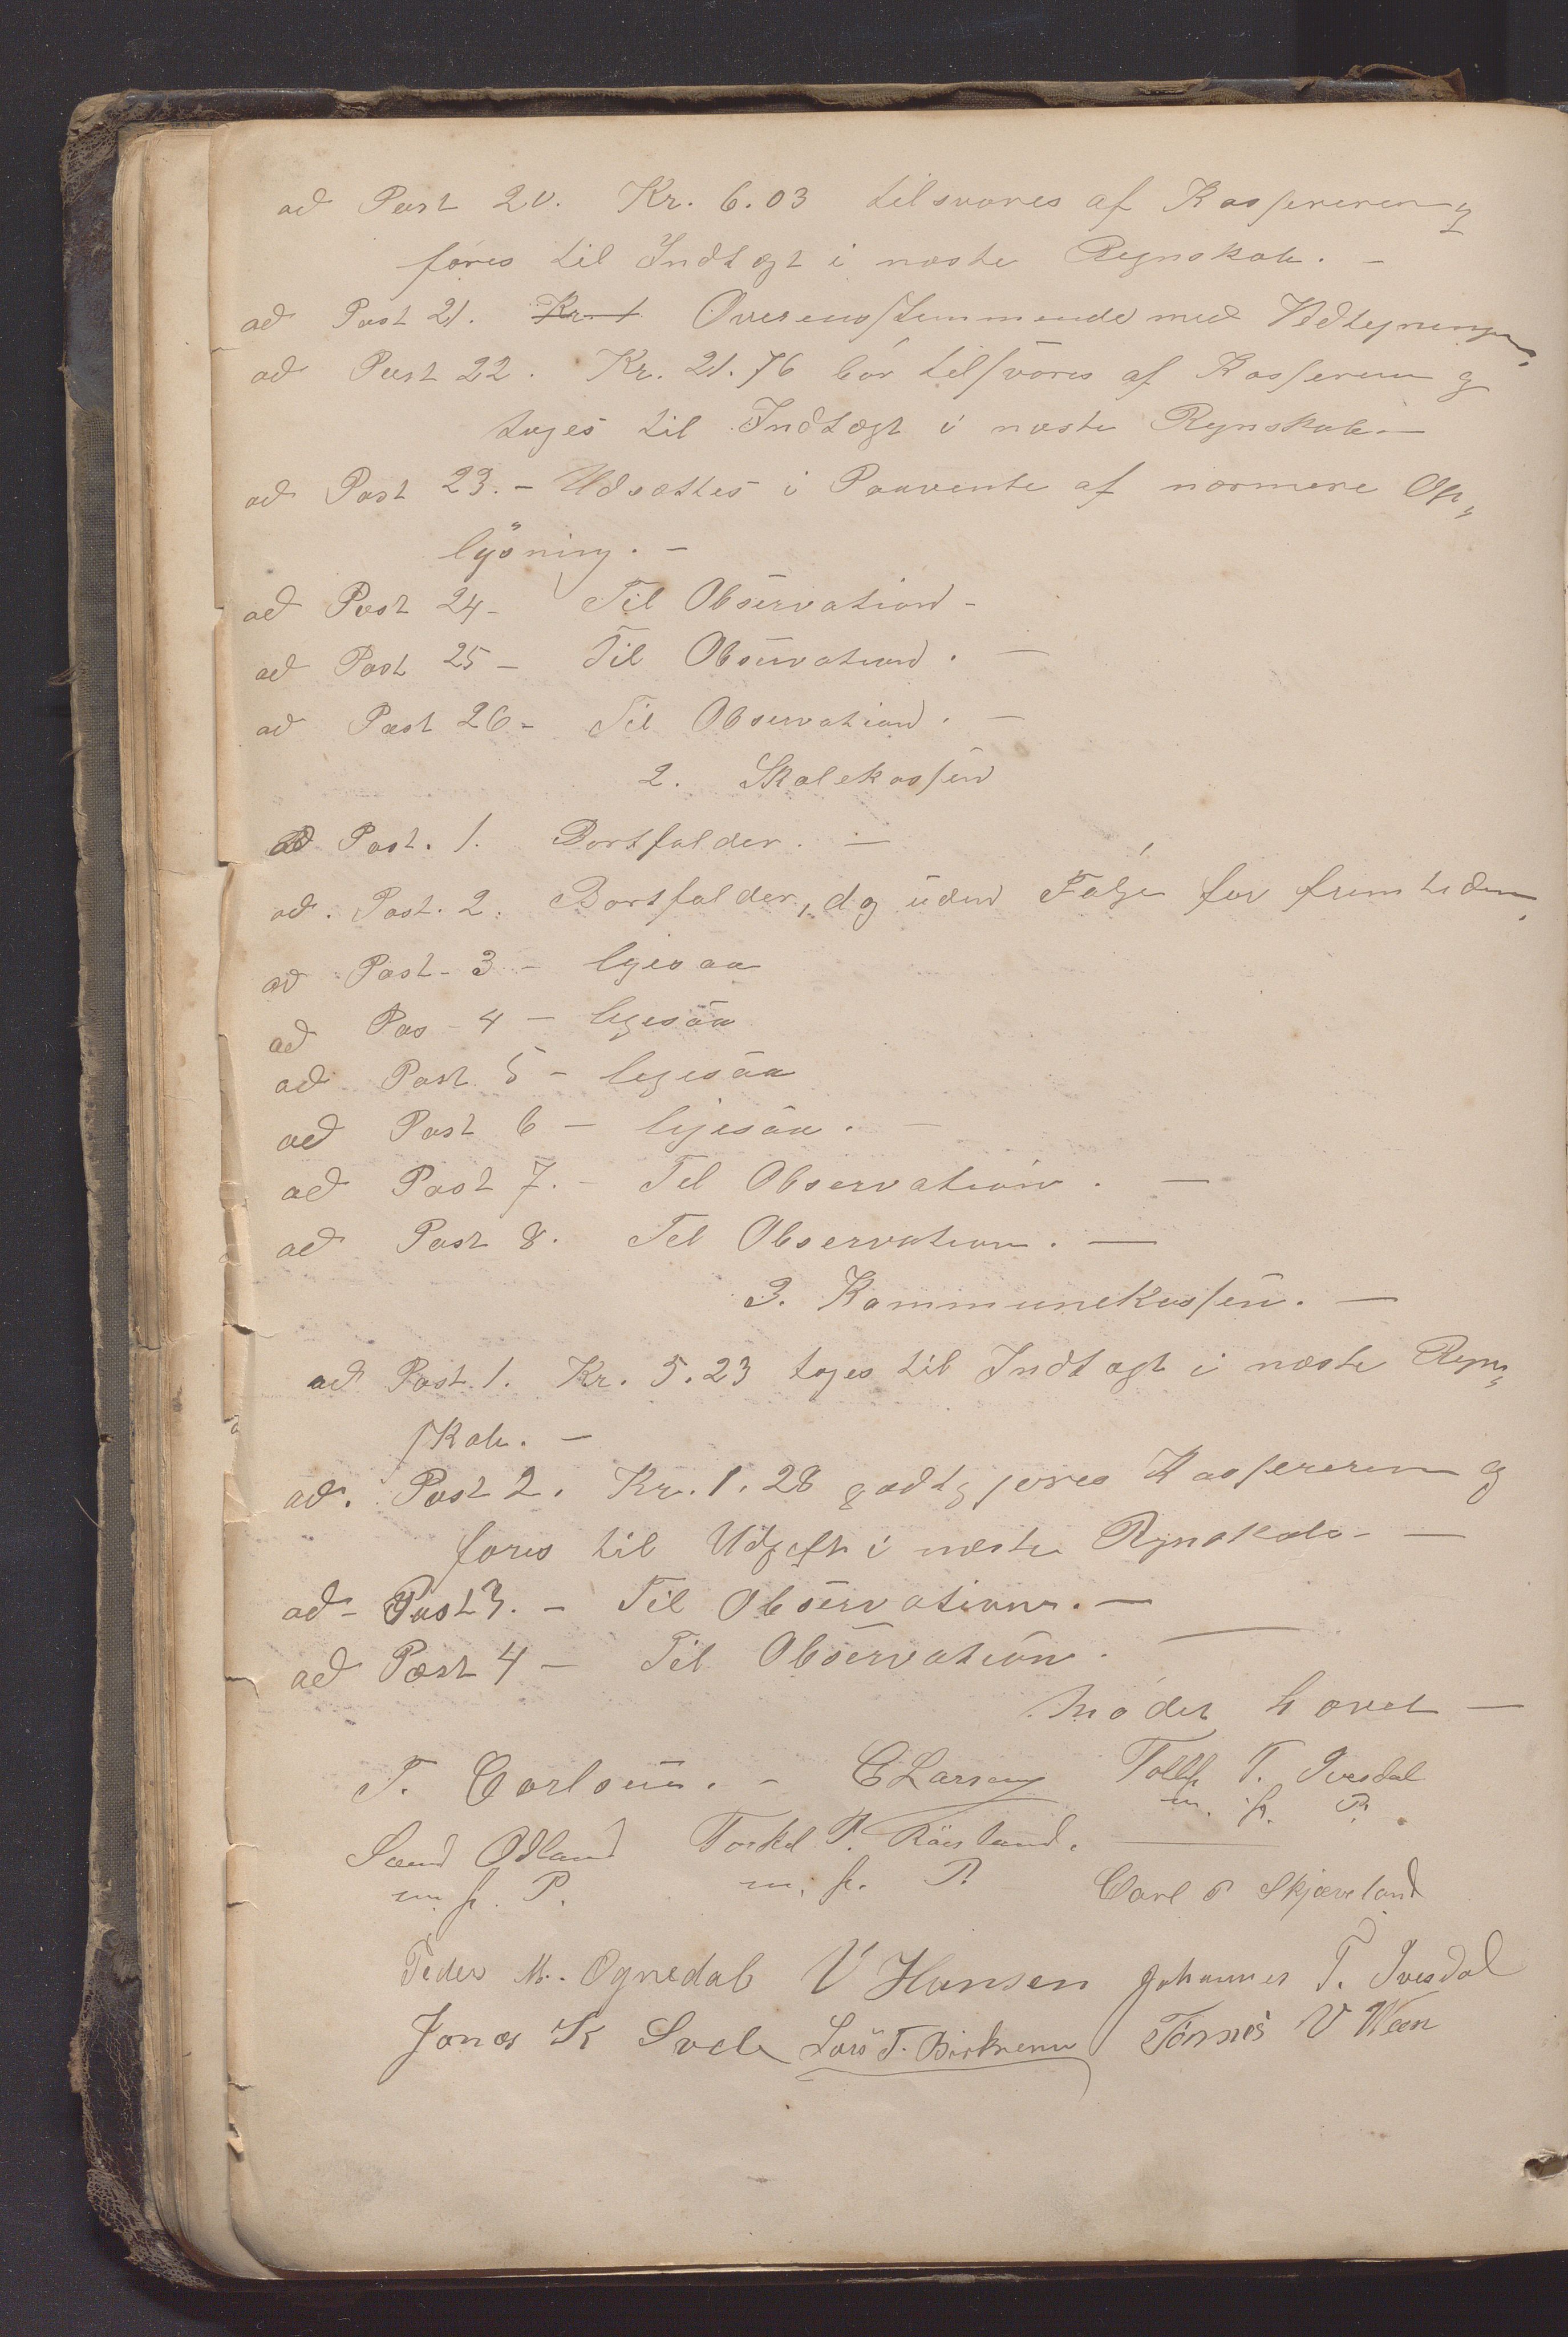 ad Post 20. Kr. 6.03 tilsvares af Kassereren og
føres til Indtægt i næste Regnskab. -
ad Post 21. Kr. 1 Overensstemmende med Vedtegningen.
ad Post 22. Kr. 21.76 bør tilsvares af Kassereren og
tages til Indtægt i næste Regnskab -
ad Post 23. - Udsættes i Paavente af nærmere Op„
lysning. -
ad Post 24 - Til Observation -
ad Post 25 - Til Observation. -
ad Post 26 - Til Observation. -
2. Skolekassen
ad Post. 1. Bortfalder. -
ad. Post. 2. Bortfalder, dog uden Følge for fremtiden.
ad Post - 3 - ligesaa
ad Pos - 4 - ligesaa
ad Post 5 - ligesaa
ad Post 6 - ligesaa. -
ad Post 7. - Til Observation. -
ad Post 8. Til Observation. -
3. Kommunekassen. -
ad Post. 1. Kr. 5.23 tages til Indtægt i næste Regn„
skab. -
ad. Post 2. Kr. 1.28 godtgjøres Kassereren og
føres til Udgift i næste Regnskab - -
ad - Post 3. - Til Observation. -
ad Post 4 - Til Observation.
Mødet hævet -
T. Carlsen. - C Larsen Tollf T. Ivesdal
m. p. P.
Svend Ødland Torkel P. Røisland.
m. p. P. m. p. P. Carl P Skjæveland
Peder M. Ognedal V Hansen Johannes T. Ivesdal
Jonas K Svele Lars T. Birkrem Tønnes V Veen